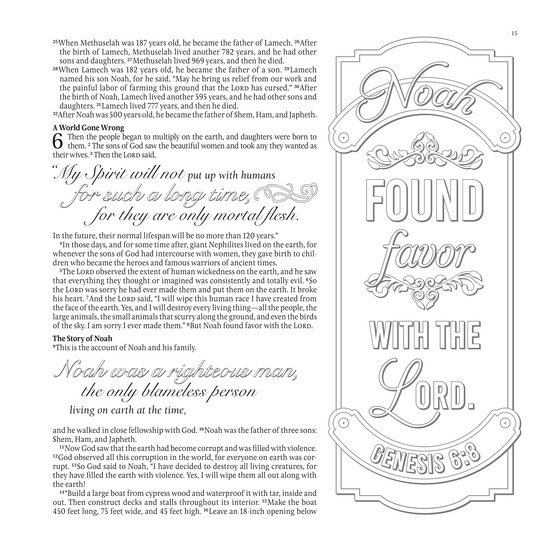 15
25When Methuselah was 187 years old, he became the father of Lamech. 26After
the birth of Lamech, Methuselah lived another 782 years, and he had other
sons and daughters. 27Methuselah lived 969 years, and then he died.
28When Lamech was 182 years old, he became the father of a son. 29Lamech
named his son Noah, for he said, “May he bring us relief from our work and
the painful labor of farming this ground that the LORD has cursed.” 30After
the birth of Noah, Lamech lived another 595 years, and he had other sons and
daughters. 31Lamech lived 777 years, and then he died.
32After Noah was 500 years old, he became the father of Shem, Ham, and Japheth.
A World Gone Wrong
6 Then the people began to multiply on the earth, and daughters were born to
them. 2 The sons of God saw the beautiful women and took any they wanted as
their wives. 3 Then the LORD said,
“My Spirit will not put up with humans
for such a long time,
for they are only mortal flesh.
In the future, their normal lifespan will be no more than 120 years.”
4In those days, and for some time after, giant Nephilites lived on the earth, for
whenever the sons of God had intercourse with women, they gave birth to chil-
dren who became the heroes and famous warriors of ancient times.
5The LORD observed the extent of human wickedness on the earth, and he saw
that everything they thought or imagined was consistently and totally evil. 6So
the LORD was sorry he had ever made them and put them on the earth. It broke
his heart. 7And the LORD said, “I will wipe this human race I have created from
the face of the earth. Yes, and I will destroy every living thing—all the people, the
large animals, the small animals that scurry along the ground, and even the birds
of the sky. I am sorry I ever made them.” 8But Noah found favor with the LORD.
The Story of Noah
9This is the account of Noah and his family.
Noah was a righteous man,
the only blameless person
living on earth at the time,
and he walked in close fellowship with God. 10Noah was the father of three sons:
Shem, Ham, and Japheth.
11Now God saw that the earth had become corrupt and was filled with violence.
12God observed all this corruption in the world, for everyone on earth was cor-
rupt. 13So God said to Noah, “I have decided to destroy all living creatures, for
they have filled the earth with violence. Yes, I will wipe them all out along with
the earth!
14“Build a large boat from cypress wood and waterproof it with tar, inside and
out. Then construct decks and stalls throughout its interior. 15Make the boat
450 feet long, 75 feet wide, and 45 feet high. 16Leave an 18-inch opening below
Noah
FOUND
favor
WITH THE
LORD.
GENESIS 6:8